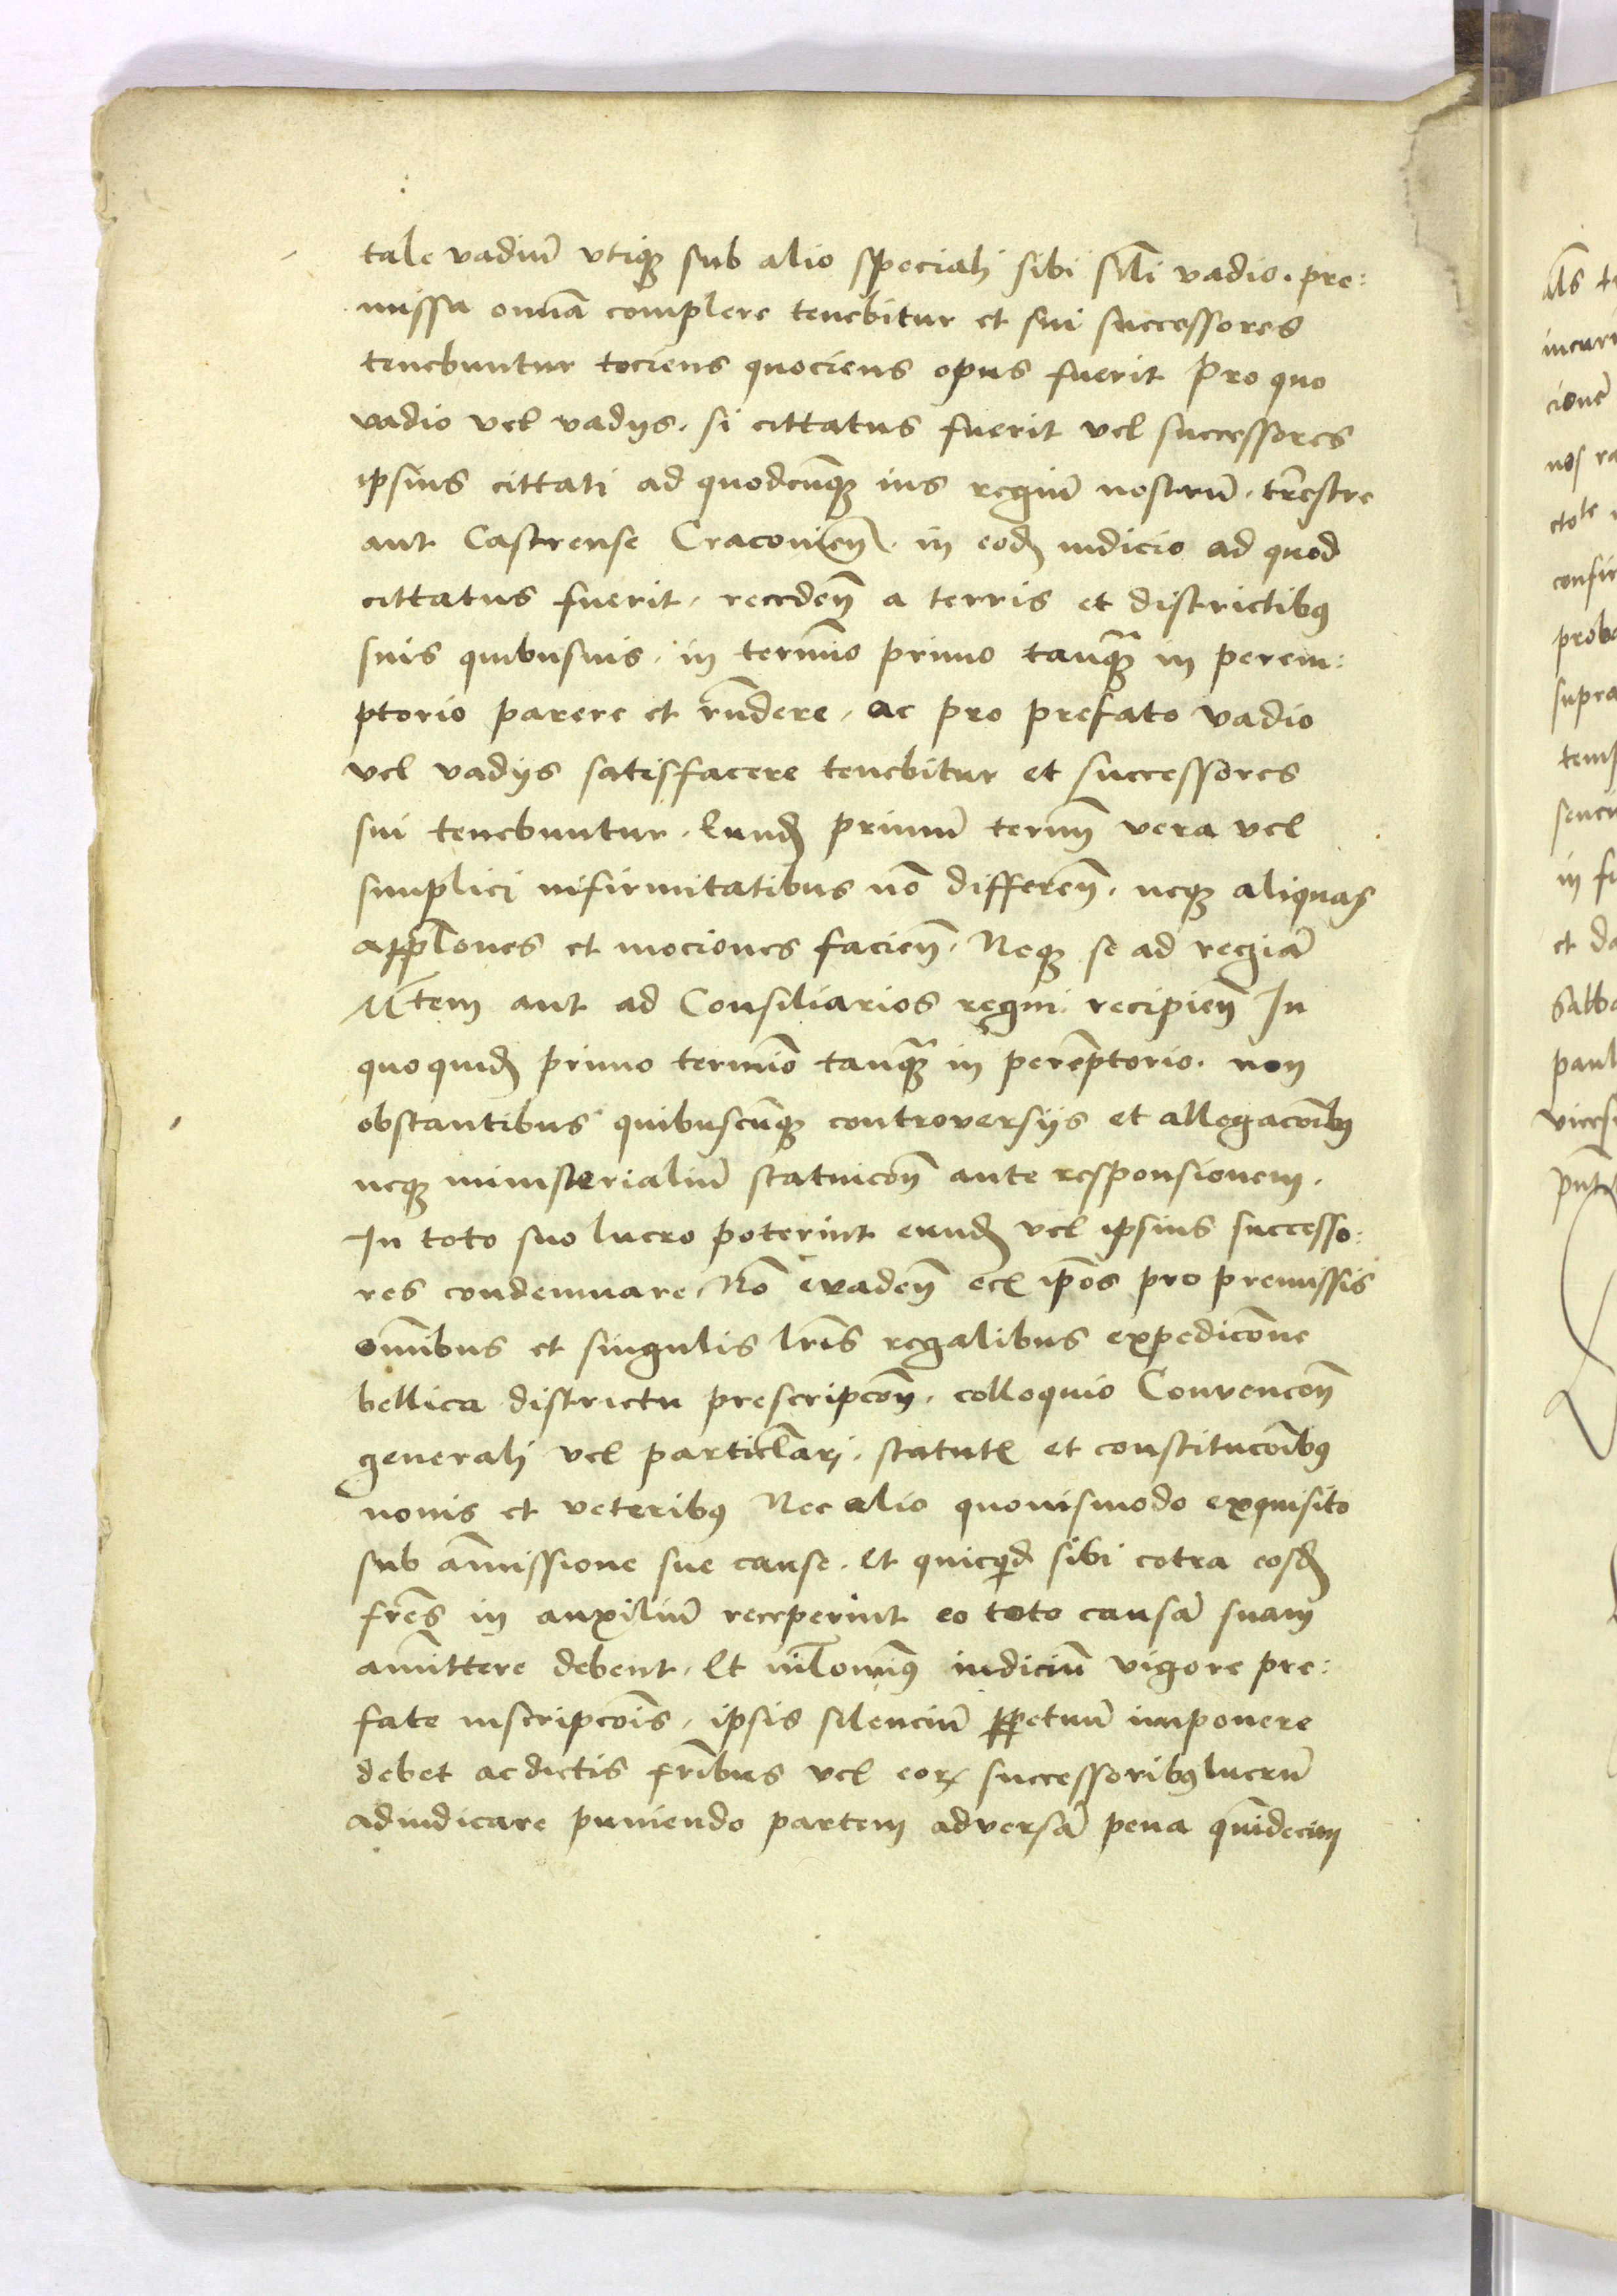 tale vadiu̅ vtiqȝ sub alio speciali sibi sil̅i vadio. pre:
missa om̅ia complere tenebitur et sui successores
tenebuntur tociens quociens opus fuerit Pro quo
vadio vel vadijs. si cittatus fuerit vel successores
ipsius cittati ad quodcu̅qȝ ius regiu̅ nostru̅. tr̅estre
aut Castrense Cracouien̅. in eod̅ iudicio ad quod
cittatus fuerit. recede̅n̅ a terris et districtibꝰ
suis quibusuis. in termi̅o primo tanqȝ̅ in perem:
ptorio parere et rn̅dere. ac pro prefato vadio
vel vadijs satisfacere tenebitur et successores
sui tenebuntur. Eund̅ primu̅ termi̅n̅ vera vel
simplici infirmitatibus no̅ differen̅. neqȝ aliquas
appl̅ones et mociones facien̅. Neqȝ se ad regia̅
Mt̅em aut ad Consiliarios regni recipien̅ In
quoquid̅ primo termi̅o tanqȝ̅ in pere̅ptorio. non
obstantibus quibuscu̅qȝ controversijs et allegaco̅ibꝰ
neqȝ ministerialiu̅ statuico̅n̅ ante responsionem.
In toto suo lucro poterint eund̅ vel ipsius successo:
res condemnare. No̅ evaden̅ ec̅ ip̅os pro premissis
om̅ibus et singulis lr̅is regalibus expedico̅ne
bellica districtu prescripco̅n̅. colloquio Convenco̅n̅
generali vel particl̅ari. statutꝭ et constituco̅ibꝰ
nouis et veteribꝰ Nec alio quouismodo exquisito
sub a̅missione sue cause. Et quicqd̅ sibi co̅tra eosd̅
fr̅es in auxiliu̅ receperint eo toto causa̅ suam
a̅mittere debent. Et nil̅omi̅ꝰ iudiciu̅ vigore pre:
fate inscripco̅is. ipsis silenciu̅ ꝑpetuu̅ imponere
debet ac dictis fr̅ibus vel eoꝝ successoribꝰ lucru̅
adiudicare puniendo partem adversa̅ pena qui̅decim